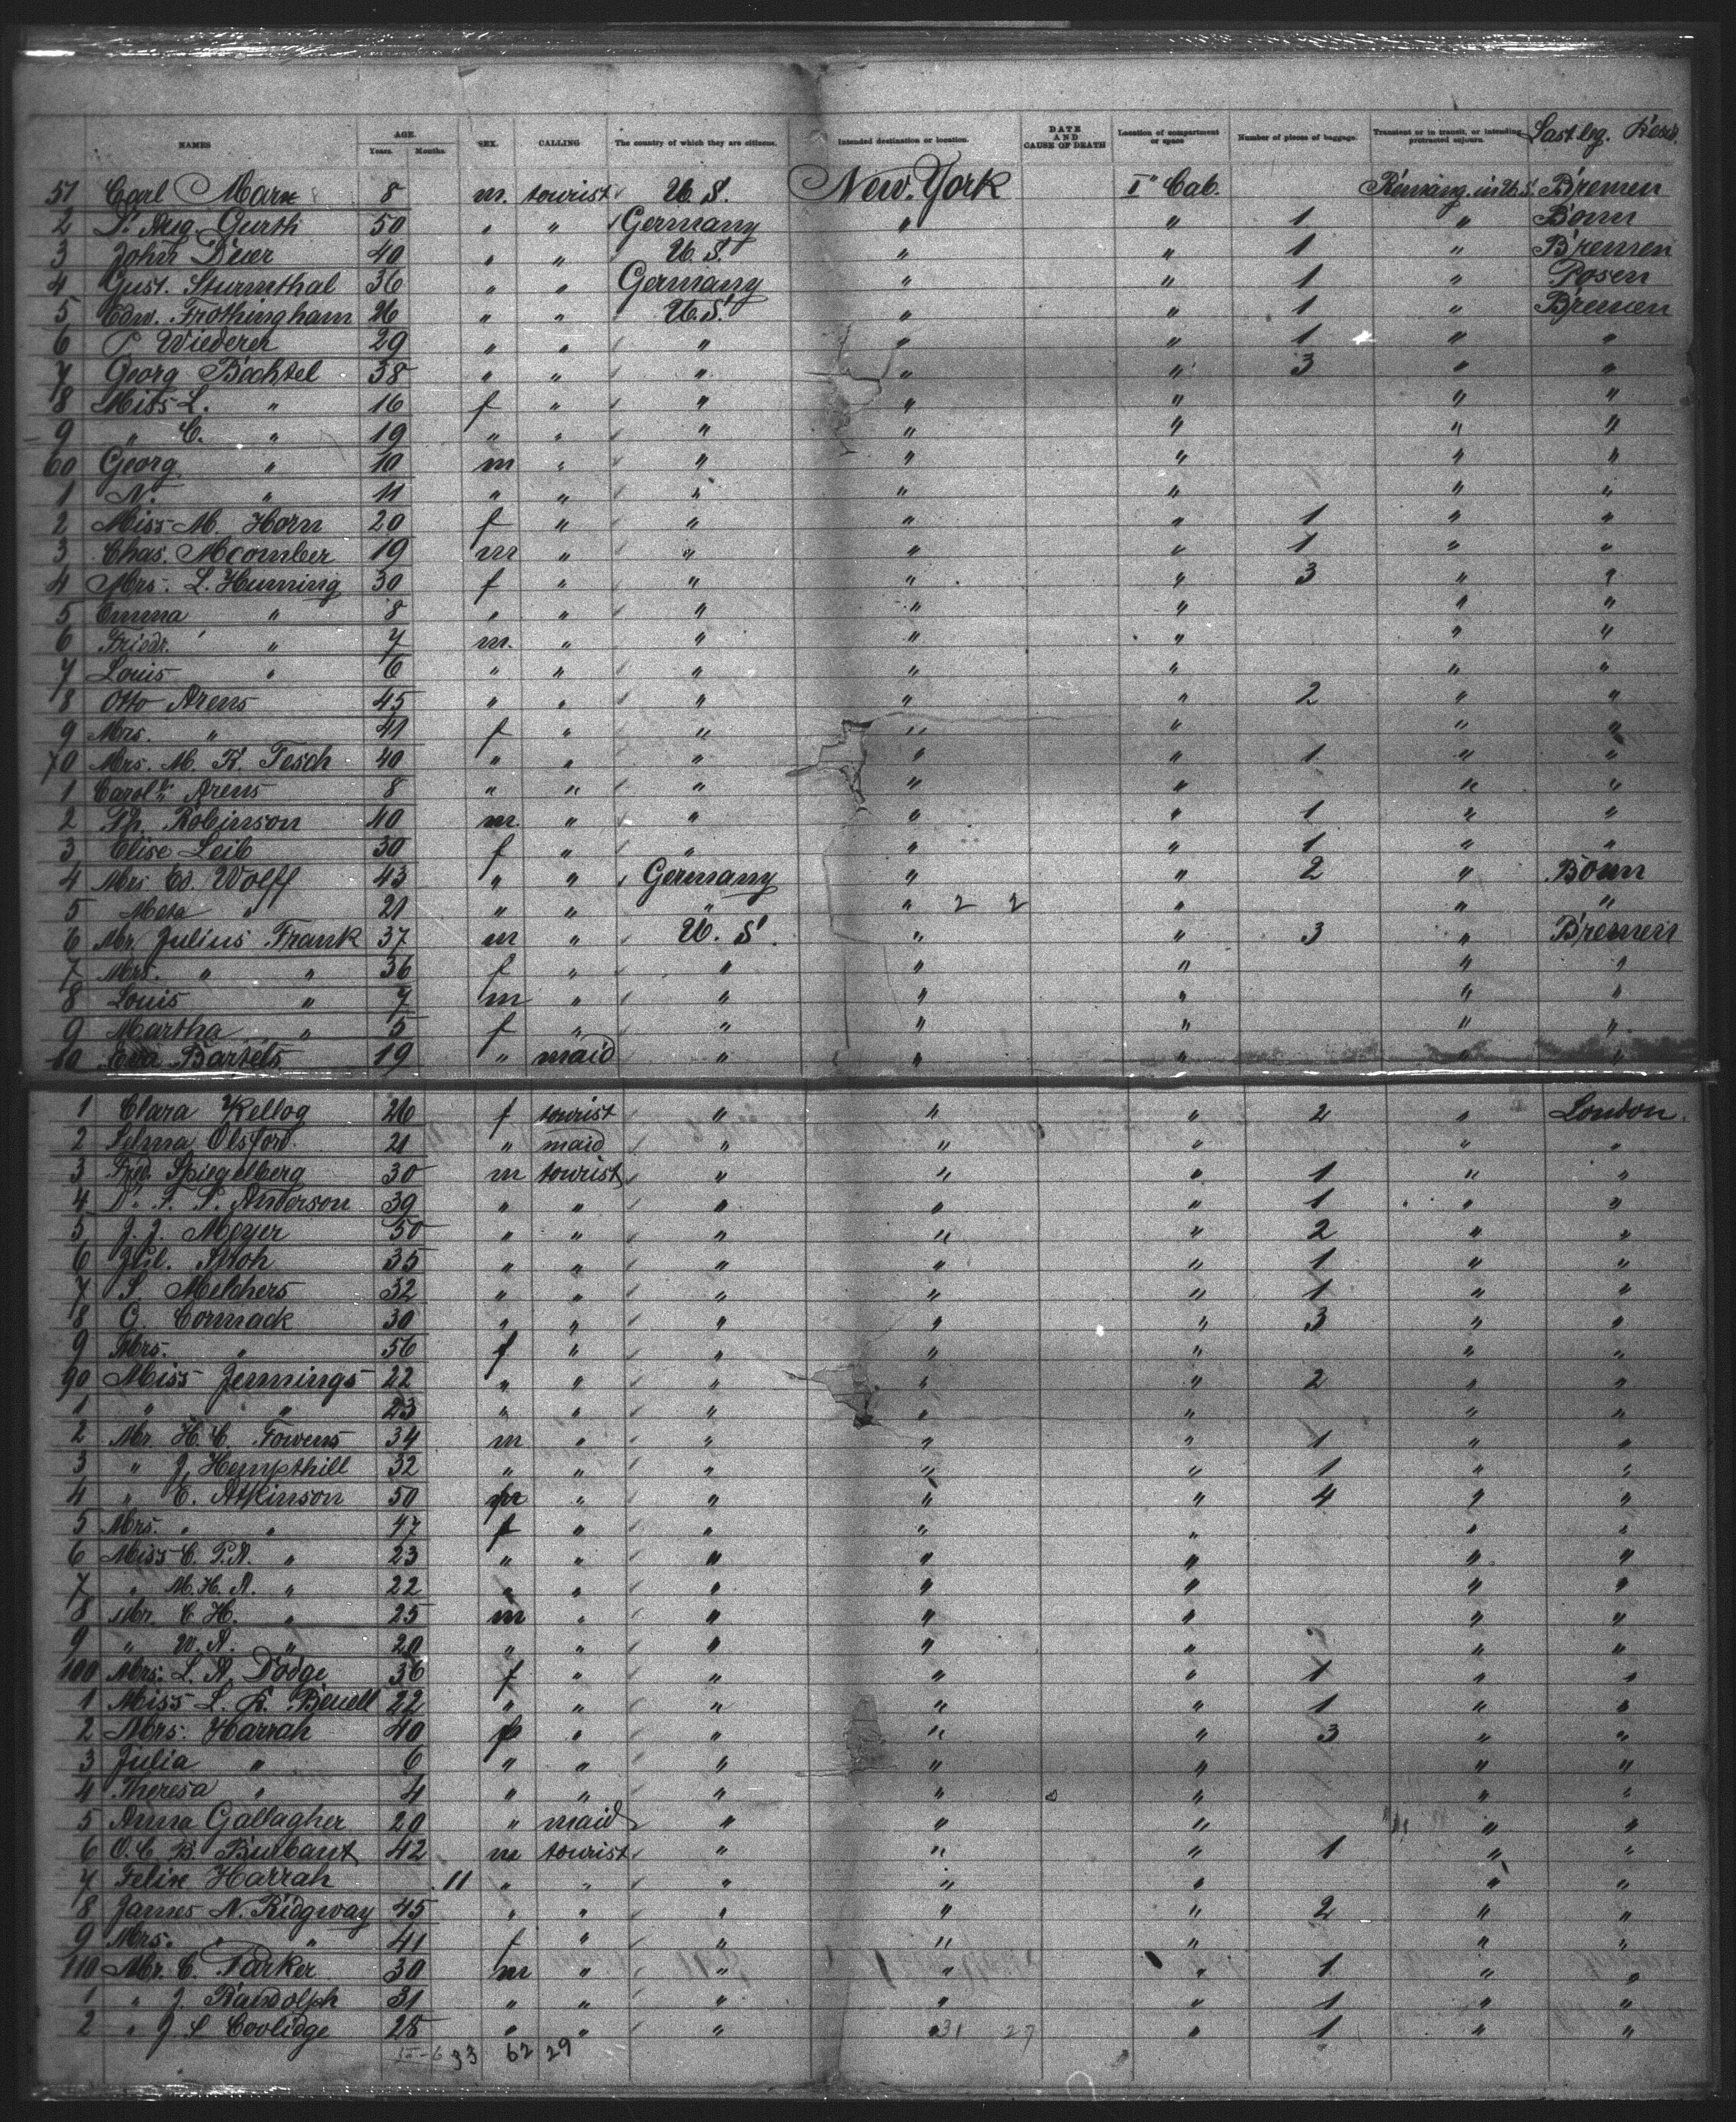 NAMES AGE. Years. Months. SEX. CALLING The country of which they are citizens. Intended destination or location. DATE AND CAUSE OF DEATH Location of compartment or space Number of pieces of baggage. Transient or in transit, or intending protracted sojourn. Last leg.
51 Carl Marx 8 m. tourist U.S. New-York I" Cab. Remaing. in U.S. Bremen
2 Dr. Aug. Gurth 50 " " Germany " " 1 " Bonn
3 John Dever 40 " " U.S. " " 1 " Bremen
4 Gust. Sturmthal 36 " " Germany " " 1 " Posen
5 Edw. Frothingham 26 " " U.S. " " 1 " Bremen
6 P Wiederer 29 " " " " " 1 " "
7 Georg Bechtel 58 " " " " " 3 " "
8 Miss L. " 16 f " " " " " "
9 " C. " 19 " " " " " " "
60 Georg " 10 m " " " " " "
1 N. " 11 " " " " " " "
2 Miss M Horn 20 f " " " " 1 " "
3 Chas. Mcomber 19 m " " " " 1 " "
4 Mrs. L. Huming 30 f " " " " 3 " "
5 Emma " 8 " " " " " " "
6 Friedr. " 7 m. " " " " " "
7 Louis " 6 " " " " " " "
8 Otto Arens 45 " " " " " 2 " "
9 Mrs. " 41 f " " " " " "
70 Mrs. M. K. Tesch 40 " " " " " 1 " "
1 Carol. Arens 8 " " " " " " "
2 Th. Robinson 40 m. " " " " 1 " "
3 Elise Leib 30 f " " " " 1 " "
4 Mrs Ed. Wolff 43 " " Germany " " 2 " Bonn
5 Meta " 21 " " " " 2 2 " " "
6 Mr. Julius Frank 37 m " U.S. " " 3 " Bremen
7 Mrs. " " 36 f " " " " " "
8 Louis " 7 m " " " " " "
9 Martha " 5 f " " " " " "
80 Bartels 19 " maid " " " " "
1 Clara Kellog 26 f tourist " " " 2 " London.
2 Selma Olsford 21 " maid " " " " "
3 Fred. Spiegelberg 30 m tourist " " " 1 " "
4 Dr. F. P. Anderson 39 " " " " " 1 " "
5 J. J. Meyer 50 " " " " " 2 " "
6 Jul. Stroh 35 " " " " " 1 " "
7 S. Melchers 32 " " " " " 1 " "
8 G. Cormack 30 " " " " " 3 " "
9 Mrs. " 56 f " " " " " "
90 Miss Jennings 22 " " " " " 2 " "
1 " " 23 " " " " " " "
2 Mr. H. C. Fowens 34 m " " " " 1 " "
3 " J. Hempthill 32 " " " " " 1 " "
4 " E. Atkinson 50 m " " " " 4 " "
5 Mrs. " " 47 f " " " " " "
6 Miss C. P.A. " 23 " " " " " " "
7 " M.H.A. " 22 " " " " " " "
8 Mr. C H. " 25 m " " " " " "
9 " W.A. " 20 " " " " " " "
100 Mrs. L. A. Dodge 36 f " " " " 1 " "
1 Miss L. K. Beuell 22 " " " " " 1 " "
2 Mrs. Harrah 40 f " " " " 3 " "
3 Julia " 6 " " " " " " "
4 Theresa " 4 " " " " " " "
5 Anna Gallagher 20 " maid " " " " "
6 O.C.B. Burbant 42 m tourist " " " 1 " "
7 Felix Harrah 11 " " " " " " "
8 James N. Ridgway 45 " " " " " 2 " "
9 Mrs. " " 41 f " " " " " "
110 Mr. C. Parker 30 m " " " " 1 " "
1 " J. Randolph 31 " " " " " 1 " "
2 " J S Coolidge 28 " " " " 31 27 " 1 " "
33 62 29